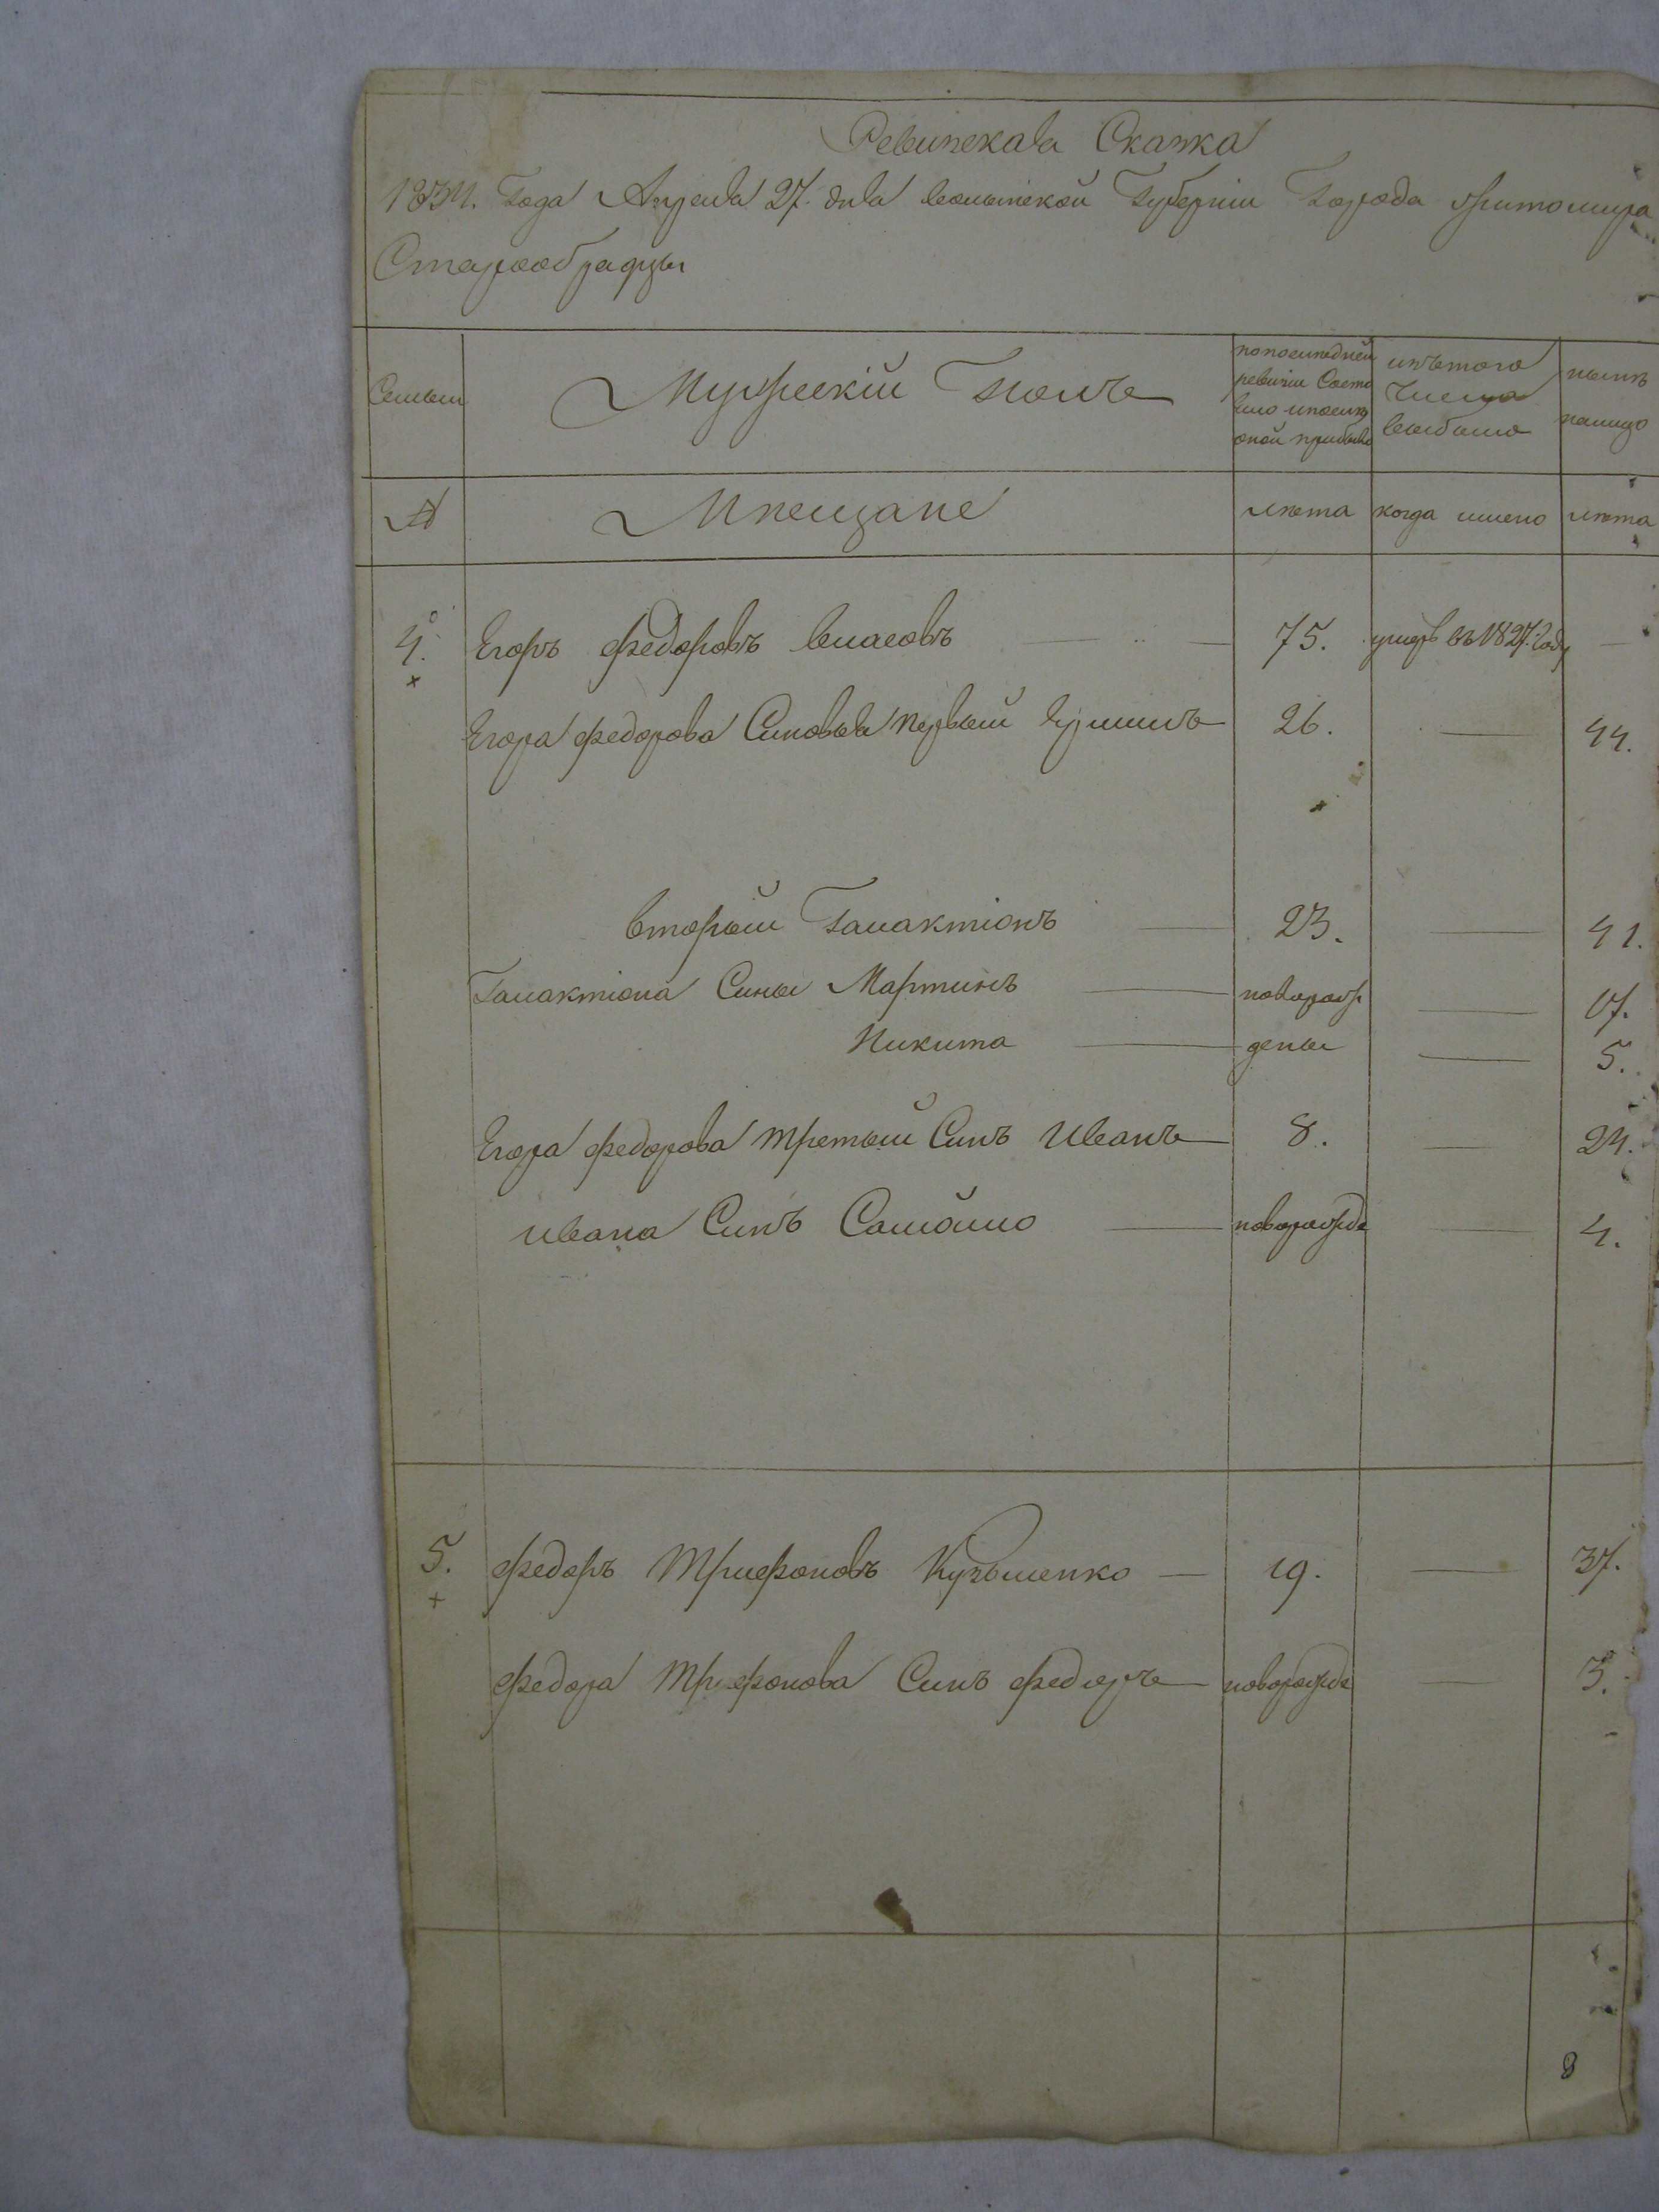 Ревизская Сказка
1834. Года Апреля 27. дня волынской Губернии Города Житомира
Старообрядцы
Семьи
Мужескiй Полъ
по последней ревизии Состояло и после оной прибыло
изътого Числа выбыло
нынѣ налицо
№
Мѣщане
лѣта
когда имено
лѣта
4.
Егоръ Федоровъ власовъ
75.
умеръ въ 1827: Году
Егора Федорова Сыновья первый
26.
44.
вторый Галактiонъ
23.
41.
Галактiона Сыны Мартинъ
новорож
17.
Никита
дены
5.
Егора Федорова третый Синъ Иванъ
8.
24.
ивана Синъ Самойло
новорожде
4.
5.
Федоръ Трифоновъ Кузьменко
19.
37.
Федора Трифонова Синъ Федоръ
новорожде
3.
8